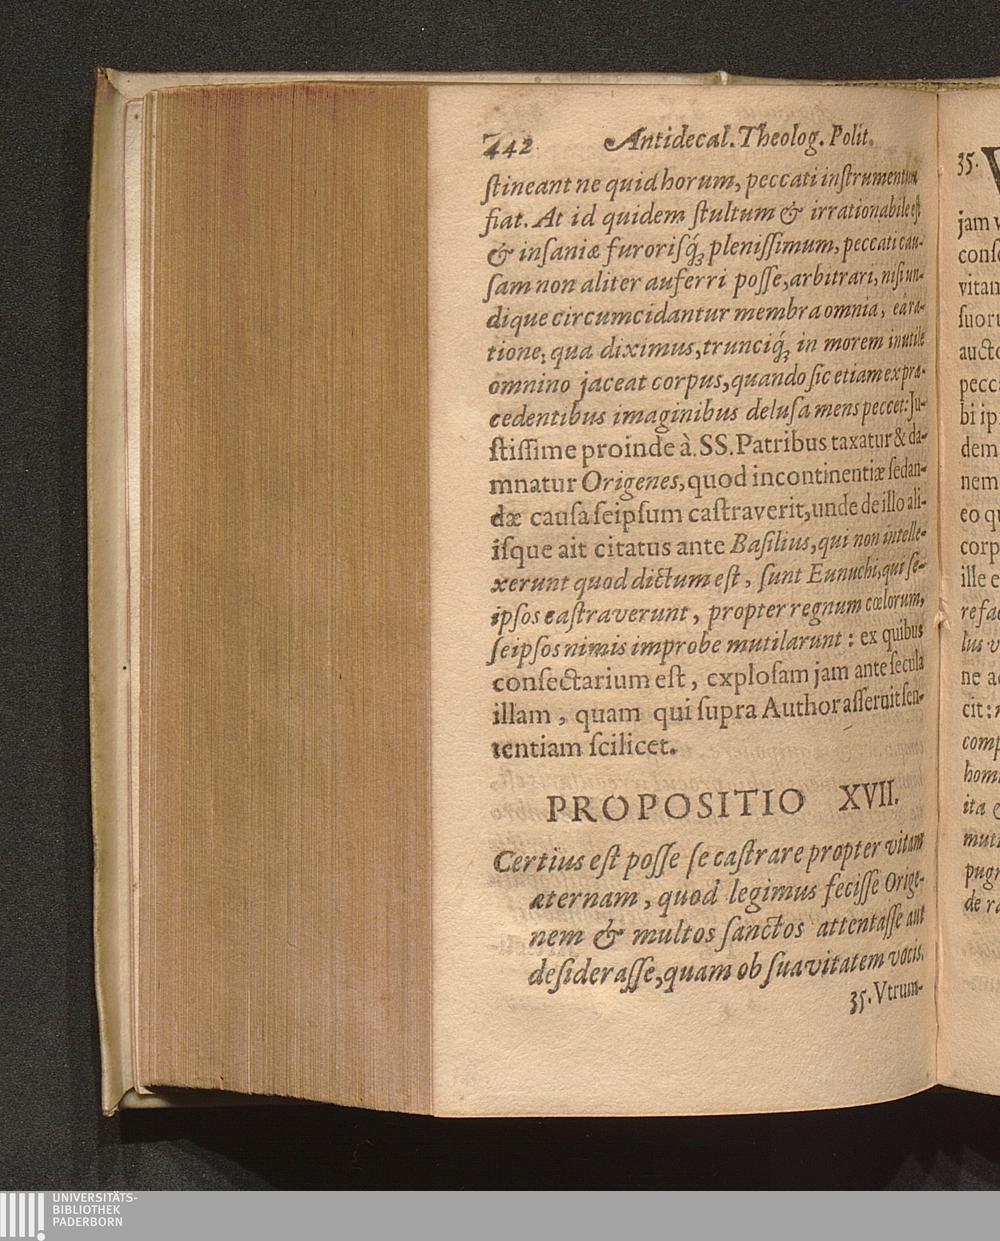 442 Antidecal. Theolog. Polit.
ſtineant ne quid horum, peccati inſtrumentum
fiat. At id quidem ſtultum & irrationabile eſt
& inſaniæ furoriſq́; pleniſſimum, peccati cau-
ſam non aliter auferri poſſe, arbitrari, niſi un-
dique circumcidantur membra omnia, eâ ra-
tione; qua diximus, trunciq́; in morem inutile
omnino jaceat corpus, quando ſic etiam ex præ-
cedentibus imaginibus deluſa mens peccet: Ju-
ſtiſſime proinde à SS. Patribus taxatur & da-
mnatur Origenes, quod incontinentiæ ſedan-
dæ cauſa ſeipſum caſtraverit, unde de illo ali-
iſque ait citatus ante Baſilius, qui non intelle-
xerunt quod dictum eſt, ſunt Eunuchi, qui ſe-
ipſos caſtraverunt, propter regnum cœlorum,
ſeipſos nimis improbe mutilarunt: ex quibus
conſectarium eſt, exploſam jam ante ſecula
illam, quam qui ſupra Author aſſeruit ſen-
tentiam ſcilicet.
PROPOSITIO XVII.
Certius eſt poſſe ſe caſtrare propter vitam
æternam, quod legimus feciſſe Orige-
nem & multos ſanctos attentaſſe aut
deſideraſſe, quam ob ſuavitatem vocis.
35. Vtrum-
35.
jam
conſ
vitam
ſuoru
aucto
pecc
bi ip
dem
nem
eo qu
corp
ille e
refac
lus v
ne a
cit:
comp
hom
ita
muti
pug
de ra
UNIVERSITÄTS-
BIBLIOTHEK
PADERBORN